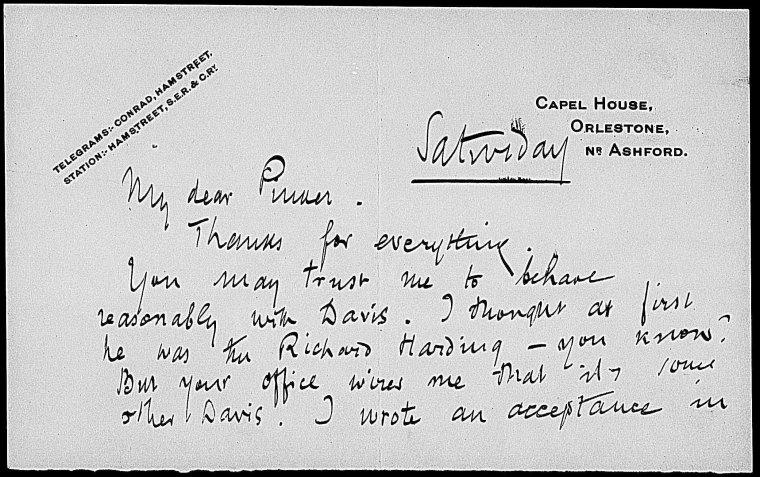 TELEGRAMS:- CONRAD, HAMSTREET.
STATION:- HAMSTREET, S.E.R. & C.RY.
CAPEL HOUSE,
ORLESTONE,
NR ASHFORD.
Saturday
My dear Pinker.
Thanks for everything.
You may trust me to behave
reasonably with Davis. I thought at first
he was the Richard Harding – you know?
But your office wires me that it's some
other Davis. I wrote an acceptance in